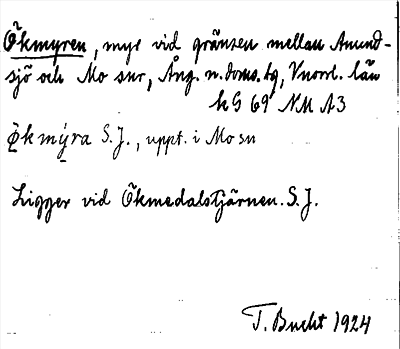 Ökmyren, myr vid gränsen mellan Anund-
sjö och Mo snr, Ång. n. doms. tg, Vnorrl. län
hG 69 NU A3
Ökmýra S.J., uppt. i Mo sn
Ligger vid Ökmedalstjärnen. S.J.
T. Bucht 1924